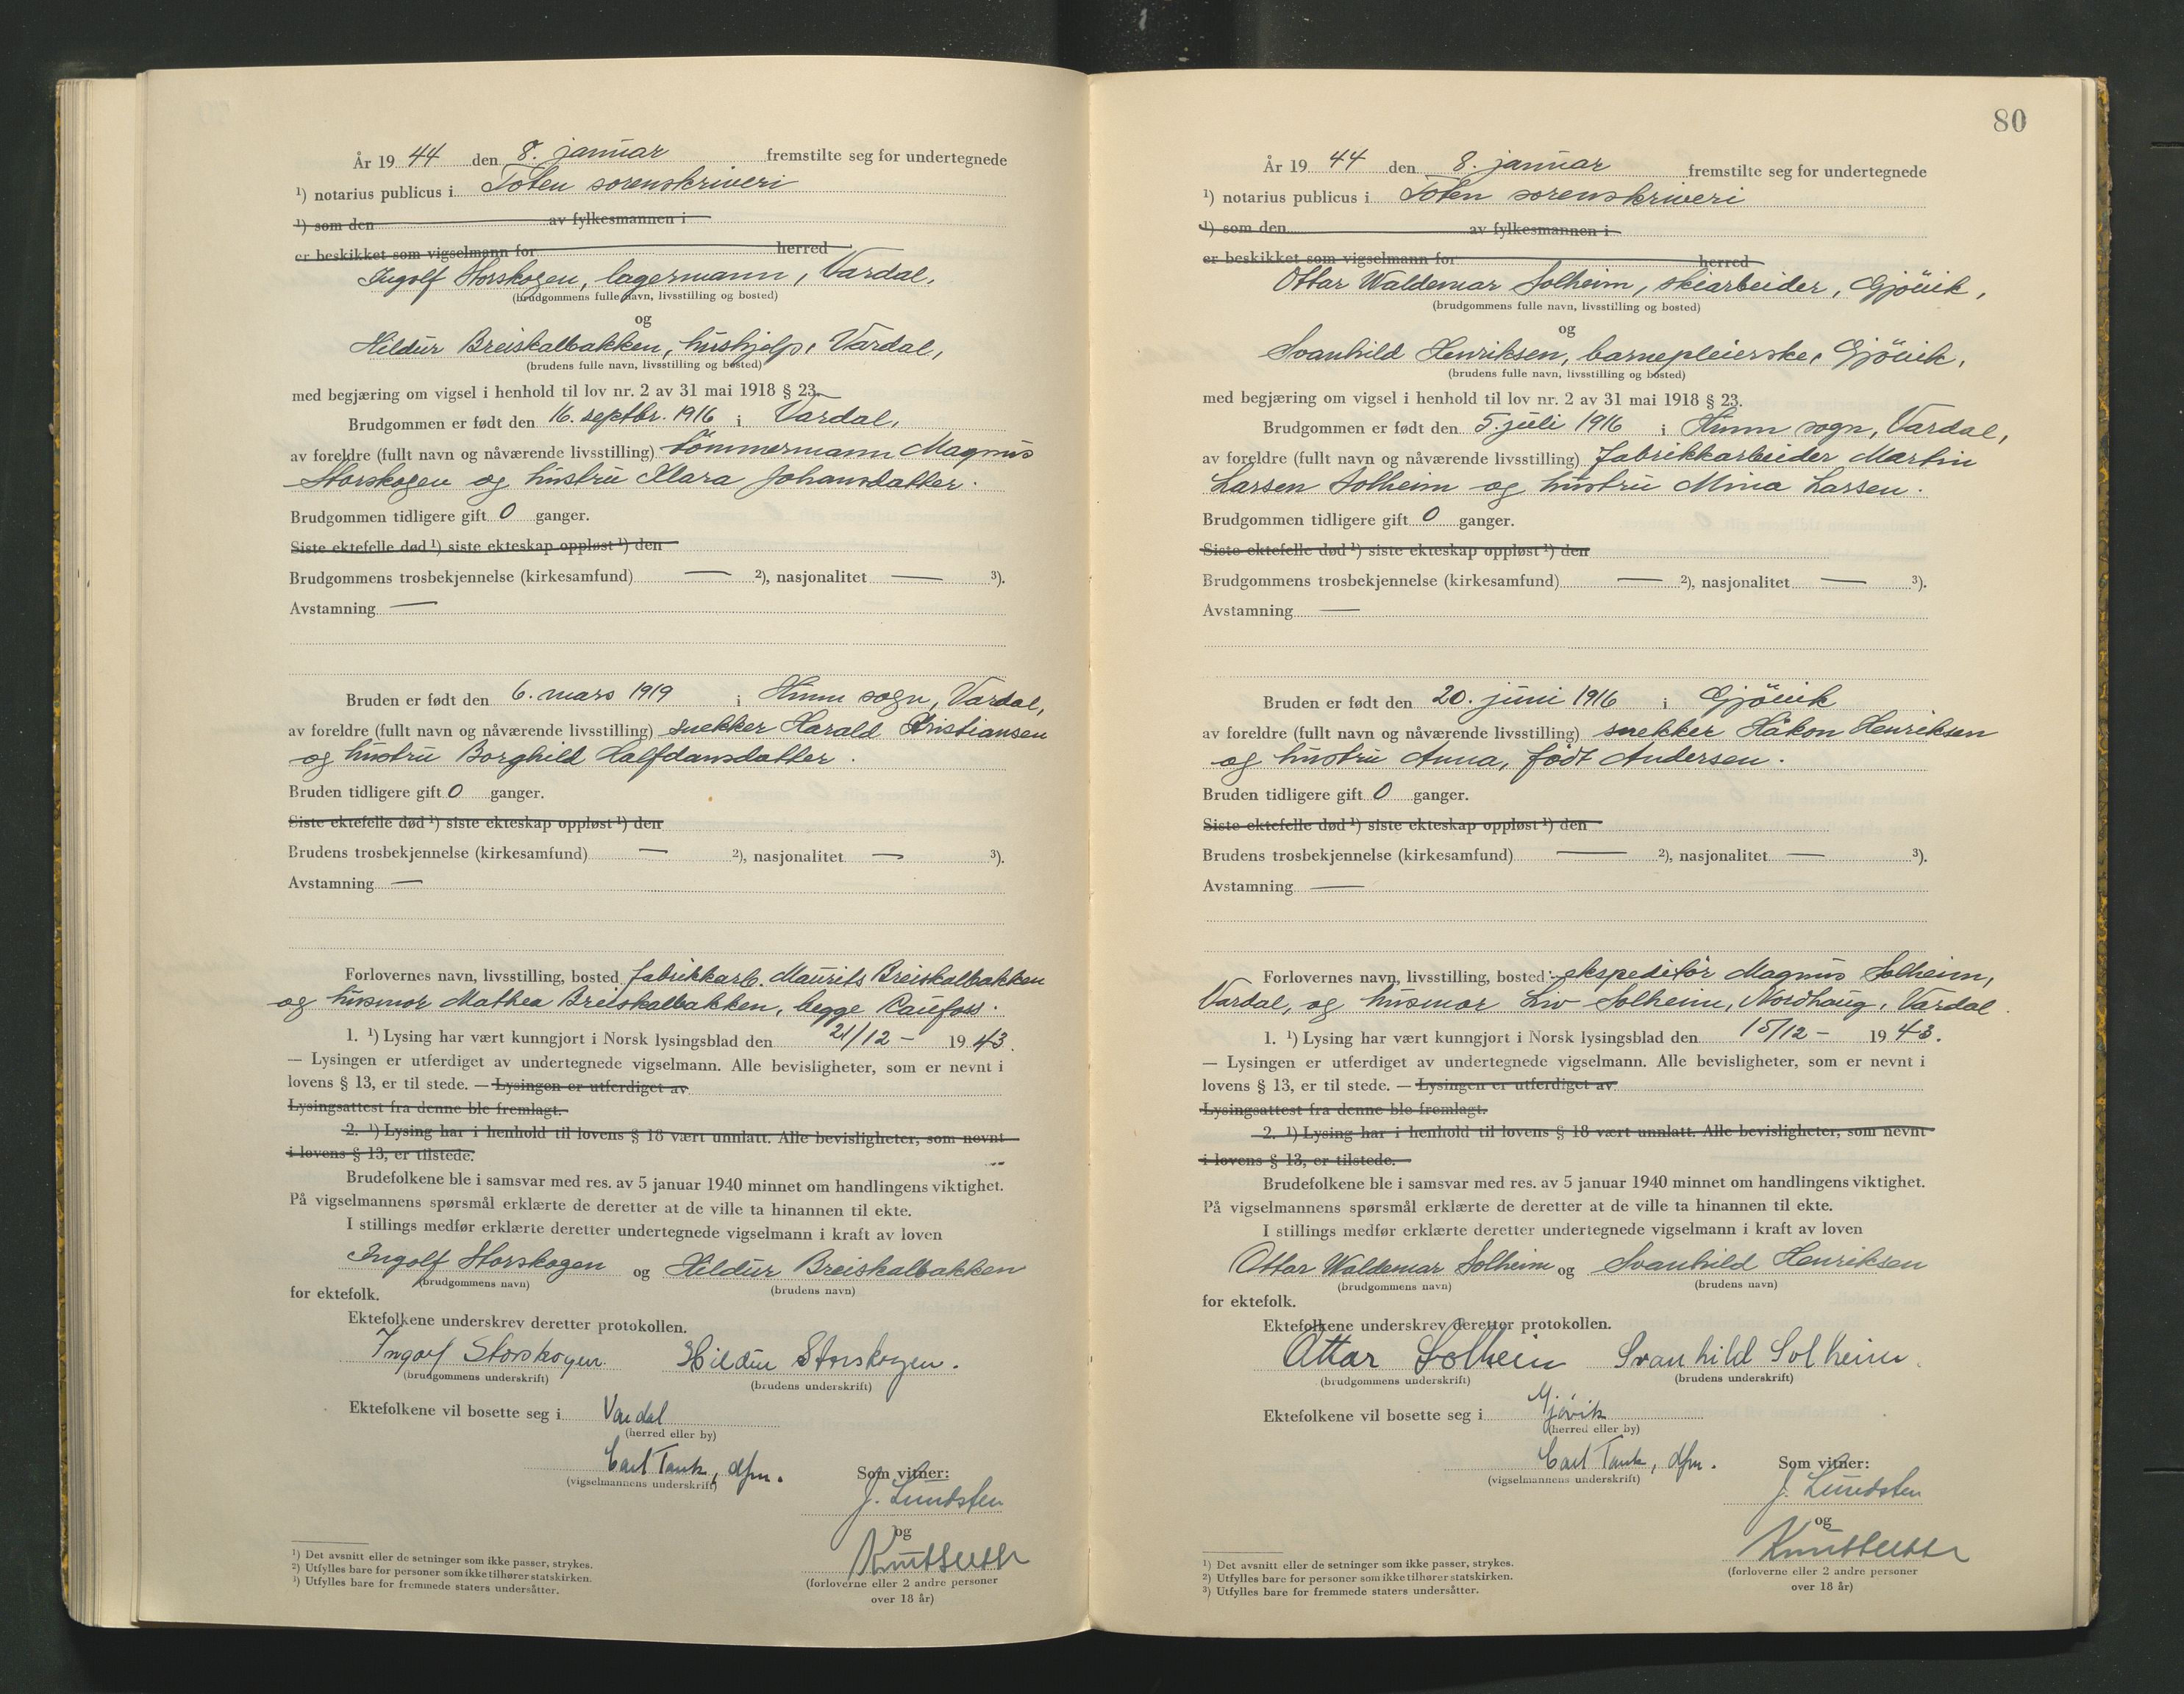 År 19 44 den 8. januar fremstilte seg for undertegnede
1) notarius publicus i Toten sorenskriveri
1) som den av fylkesmannen i
er beskikket som vigselmann for herred
Ingolf Storskogen, lagermann, Vardal,
(brudgommens fulle navn, livsstilling og bosted)
og
Hildur Breiskalbakken, hushjelp, Vardal,
(brudens fulle navn, livsstilling og bosted)
med begjæring om vigsel i henhold til lov nr. 2 av 31 mai 1918 § 23.
Brudgommen er født den 16. septbr. 1916 i Vardal,
av foreldre (fullt navn og nåværende livsstilling) tömmermann Magnus
Storskogen og hustru Klara Johansdatter.
Brudgommen tidligere gift 0 ganger.
Siste ektefelle død 1) siste ekteskap oppløst 1) den
Brudgommens trosbekjennelse (kirkesamfund) — 2), nasjonalitet — 3).
Avstamning —
Bruden er født den 6. mars 1919 i Hunn sogn, Vardal,
av foreldre (fullt navn og nåværende livsstilling) snekker Harald Kristiansen
og hustru Borghild Halfdansdatter.
Bruden tidligere gift 0 ganger.
Siste ektefelle død 1) siste ekteskap oppløst 1) den
Brudens trosbekjennelse (kirkesamfund) — 2), nasjonalitet — 3).
Avstamning —
Forlovernes navn, livsstilling, bosted fabrikkarb. Maurits Breiskalbakken
og husmor Mathea Breiskalbakken, begge Raufoss.
1. 1) Lysing har vært kunngjort i Norsk lysingsblad den 21/12 – 19 43.
— Lysingen er utferdiget av undertegnede vigselmann. Alle bevisligheter, som er nevnt i
lovens § 13, er til stede. — Lysingen er utferdiget av
Lysingsattest fra denne ble fremlagt.
2. 1) Lysing har i henhold til lovens § 18 vært unnlatt. Alle bevisligheter, som nevnt
i lovens § 13, er tilstede.
Brudefolkene ble i samsvar med res. av 5 januar 1940 minnet om handlingens viktighet.
På vigselmannens spørsmål erklærte de deretter at de ville ta hinannen til ekte.
I stillings medfør erklærte deretter undertegnede vigselmann i kraft av loven
Ingolf Storskogen og Hildur Breiskalbakken
(brudgommens navn) (brudens navn)
for ektefolk.
Ektefolkene underskrev deretter protokollen.
Ingolf Storskogen Hildur Storskogen.
(brudgommens underskrift) (brudens underskrift)
Ektefolkene vil bosette seg i Vardal
(herred eller by)
Carl Tank, dfm. Som vitner:
(vigselmannens underskrift)
J. Lundsten
og
(forloverne eller 2 andre personer
over 18 år)
1) Det avsnitt eller de setninger som ikke passer, strykes.
2) Utfylles bare for personer som ikke tilhører statskirken.
3) Utfylles bare for fremmede staters undersåtter.
80
År 19 44 den 8. januar fremstilte seg for undertegnede
1) notarius publicus i Toten sorenskriveri
1) som den av fylkesmannen i
er beskikket som vigselmann for herred
Ottar Waldemar Solheim, skiarbeider, Gjövik,
(brudgommens fulle navn, livsstilling og bosted)
og
Svanhild Henriksen, barnepleierske, Gjövik,
(brudens fulle navn, livsstilling og bosted)
med begjæring om vigsel i henhold til lov nr. 2 av 31 mai 1918 § 23.
Brudgommen er født den 5. juli 1916 i Hunn sogn, Vardal,
av foreldre (fullt navn og nåværende livsstilling) fabrikkarbeider Martin
Larsen Solheim og hustru Mina Larsen.
Brudgommen tidligere gift 0 ganger.
Siste ektefelle død 1) siste ekteskap oppløst 1) den
Brudgommens trosbekjennelse (kirkesamfund) — 2), nasjonalitet — 3).
Avstamning —
Bruden er født den 20. juni 1916 i Gjövik
av foreldre (fullt navn og nåværende livsstilling) snekker Håkon Henriksen
og hustru Anna, født Andersen.
Bruden tidligere gift 0 ganger.
Siste ektefelle død 1) siste ekteskap oppløst 1) den
Brudens trosbekjennelse (kirkesamfund) — 2), nasjonalitet — 3).
Avstamning —
Forlovernes navn, livsstilling, bosted: ekspeditör Magnus Solheim,
Vardal, og husmor Liv Solheim, Nordhaug, Vardal.
1. 1) Lysing har vært kunngjort i Norsk lysingsblad den 15/12 – 19 43.
— Lysingen er utferdiget av undertegnede vigselmann. Alle bevisligheter, som er nevnt i
lovens § 13, er til stede. — Lysingen er utferdiget av
Lysingsattest fra denne ble fremlagt.
2. 1) Lysing har i henhold til lovens § 18 vært unnlatt. Alle bevisligheter, som nevnt
i lovens § 13, er tilstede.
Brudefolkene ble i samsvar med res. av 5 januar 1940 minnet om handlingens viktighet.
På vigselmannens spørsmål erklærte de deretter at de ville ta hinannen til ekte.
I stillings medfør erklærte deretter undertegnede vigselmann i kraft av loven
Ottar Waldemar Solheim og Svanhild Henriksen
(brudgommens navn) (brudens navn)
for ektefolk.
Ektefolkene underskrev deretter protokollen.
Ottar Solheim Svanhild Solheim.
(brudgommens underskrift) (brudens underskrift)
Ektefolkene vil bosette seg i Gjøvik
(herred eller by)
Carl Tank, dfm. Som vitner:
(vigselmannens underskrift)
J. Lundsten
og
(forloverne eller 2 andre personer
over 18 år)
1) Det avsnitt eller de setninger som ikke passer, strykes.
2) Utfylles bare for personer som ikke tilhører statskirken.
3) Utfylles bare for fremmede staters undersåtter.